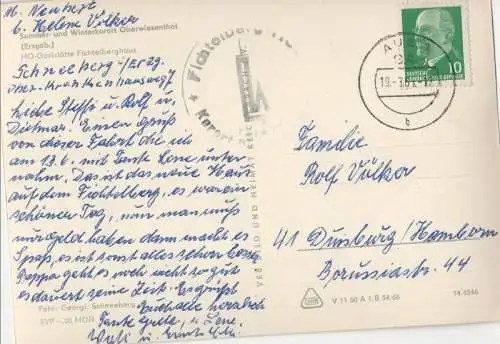 M. Neubert
b. Helene Völker
Sommer- und Winterkurort Oberwiesenthal
(Erzgeb.)
HO-Gaststätte Fichtelberghaus
Schneeberg/Erzg.
Liebe Steffi u. Rolf u.
Dietmar. Einen Gruß
von dieser Fahrt die ich
am 13.6. mit Tante Lene unter-
nahm. Das ist das neue Haus
auf dem Fichtelberg, es war ein
schöner Tag, nur man muß
nur Geld haben dann macht es
Spaß, es ist sonst alles schon besetzt
Pappa geht es noch nicht so gut
es dauert seine Zeit. Es grüßt
Euch alle herzlich
Tante u. Lene.
u.
Foto: Georgi, Schneeberg
EVP –,20 MDN
VEB BILD UND HEIMAT REICH
Fichtelberg
Kurort
AU
19.-
b
10
DEUTSCHE
DEMOKRATISCHE REPUBLIK
Familie
Rolf Völker
41 Duisburg/Hamborn
Borussiastr. 44
V 11 50 A 1/B 54/66
14 6546